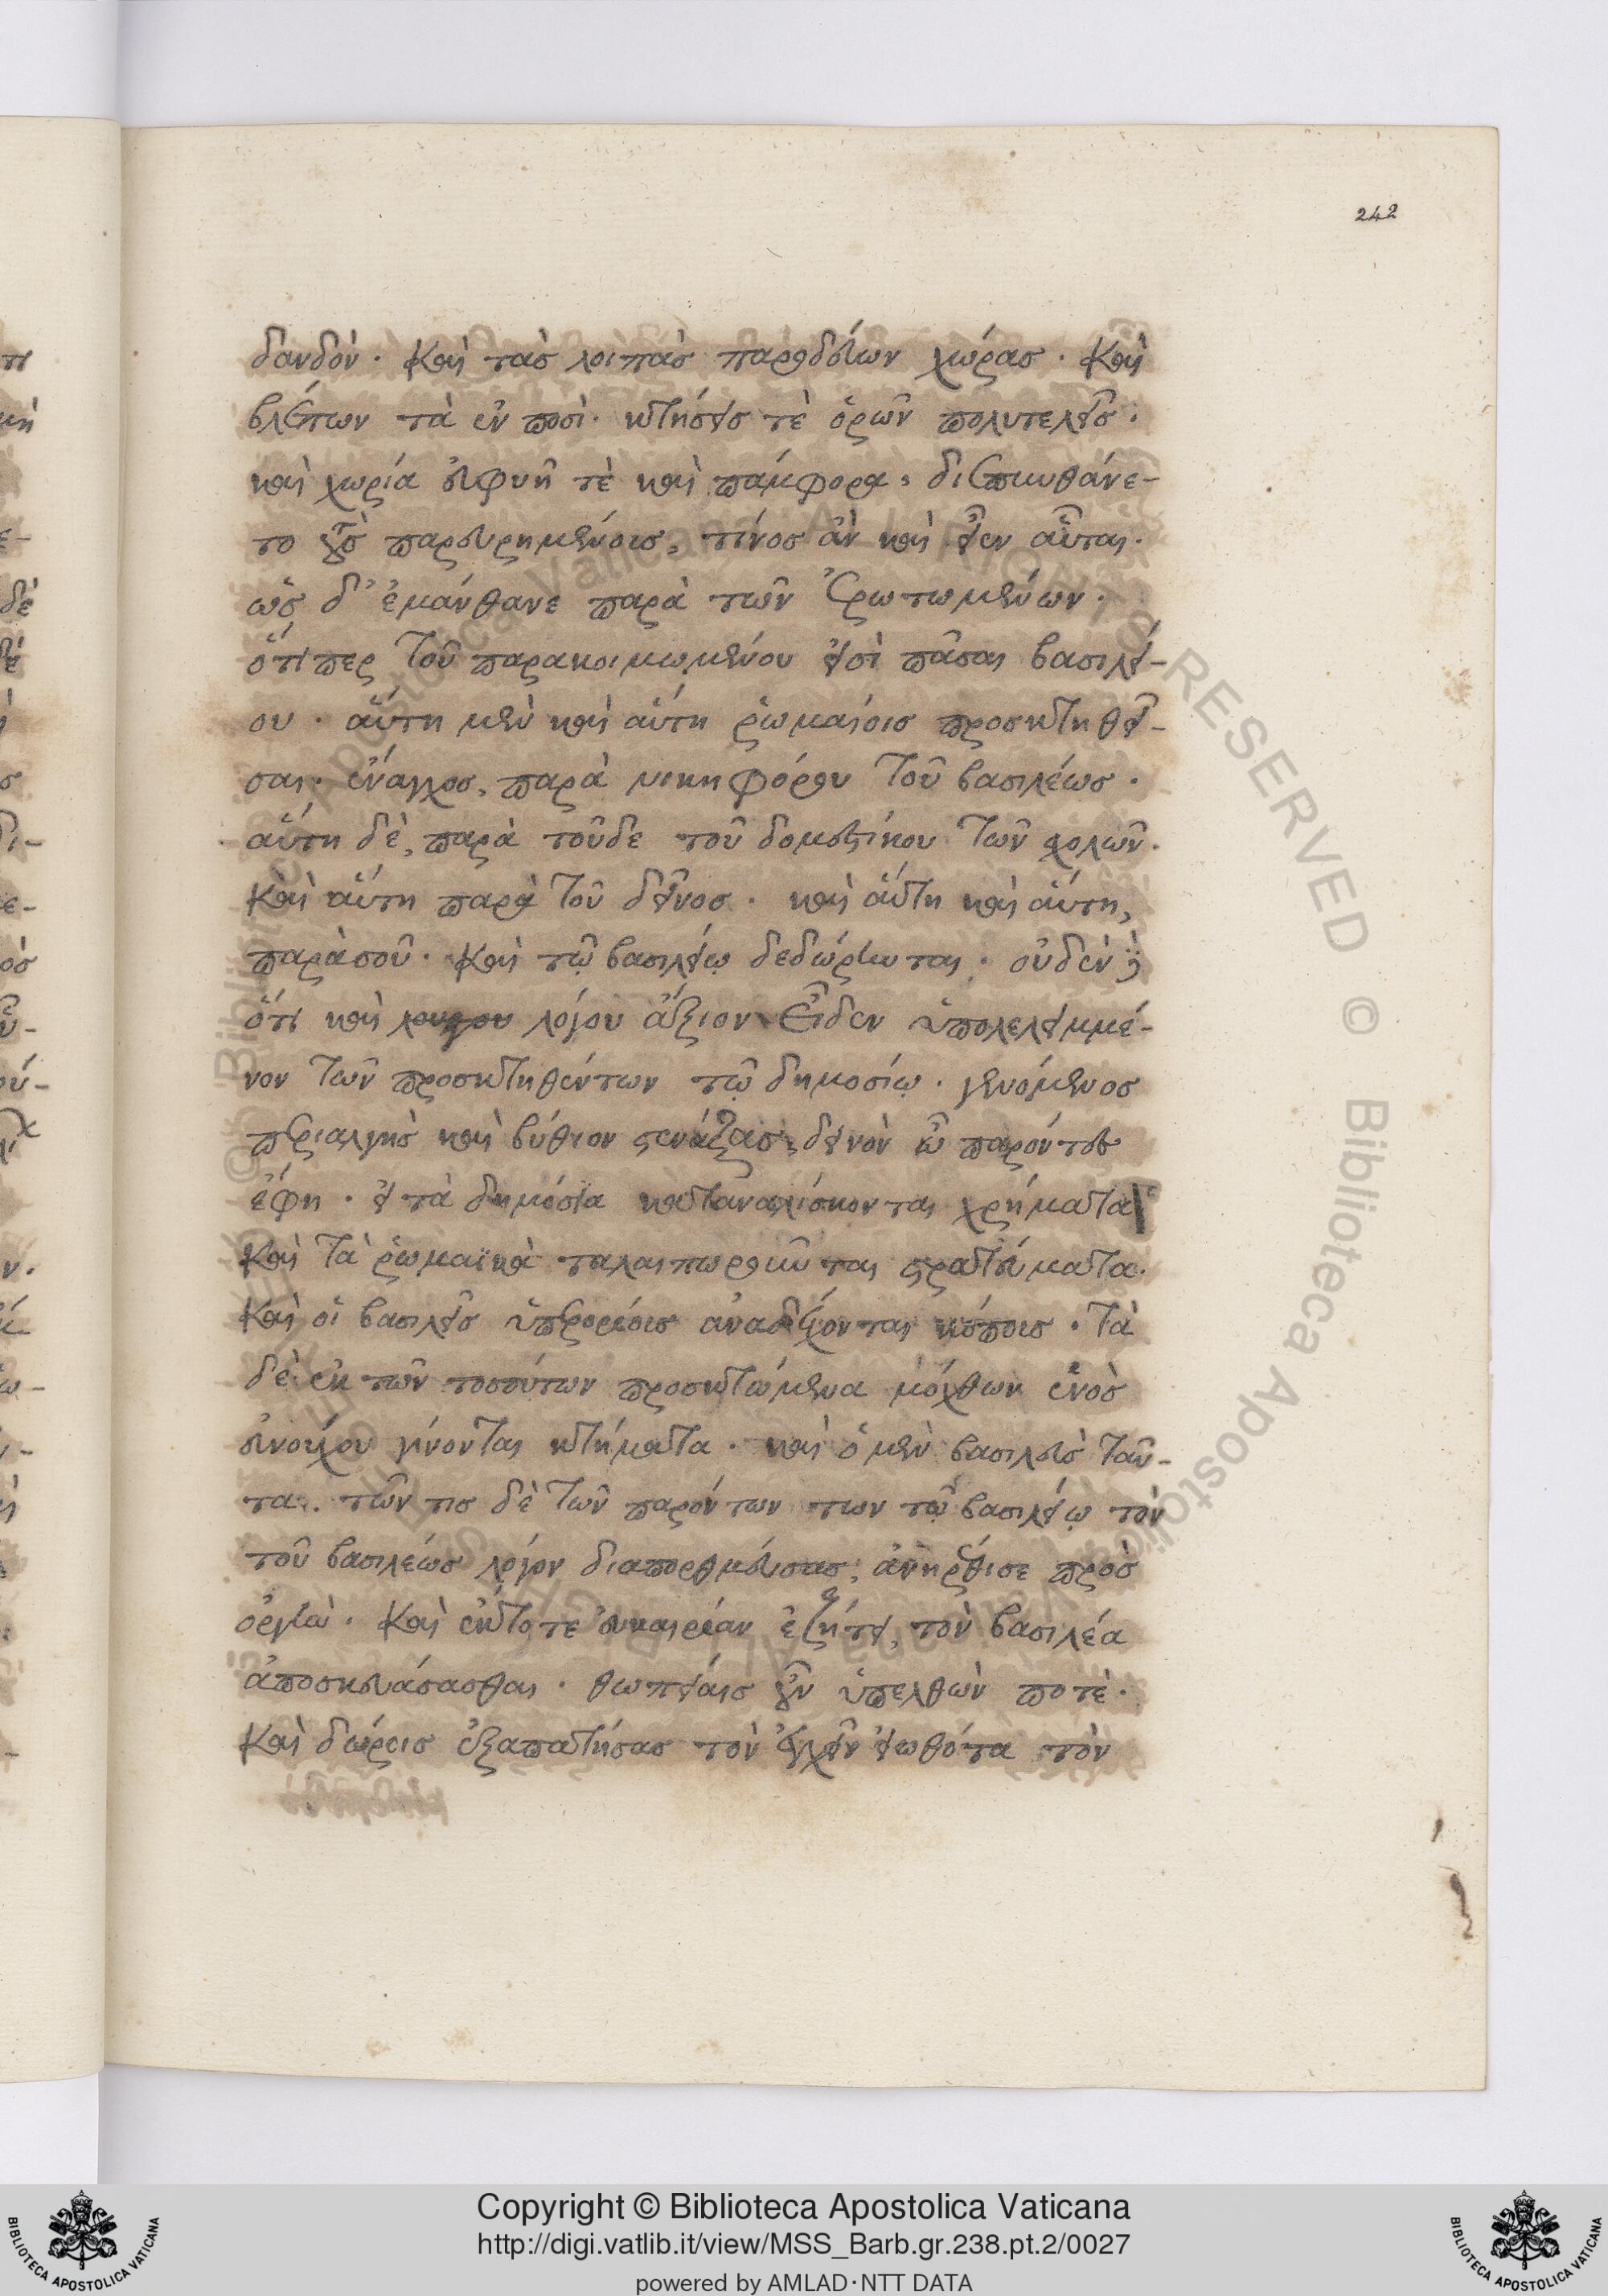 242
δανδόν. καὶ τὰσ λοιπὰσ παροδεύων χώρασ. καὶ
βλέπων τὰ ἐν ποσὶ. κτήσεισ τὲ ὁρῶν πολυτελεῖσ.
καὶ χωρία εὐφυῆ τὲ καὶ πάμφορα, διεπυνθάνε-
το τοὺσ παρευρημένοισ, τίνοσ ἂν καὶ εἶεν αὗται.
ὡσ δ' ἐμάνθανε παρὰ τῶν ἐρωτωμένων.
ὅτιπερ τοῦ παρακοιμωμένου εἰσὶ πᾶσαι βασιλεί-
ου. αὕτη μὲν καὶ αὕτη ῥωμαίοισ προσκτηθεῖ-
σαι. ἔναγχοσ, παρὰ νικηφόρου τοῦ βασιλέωσ.
αὕτη δὲ, παρὰ τοῦδε τοῦ δομεστίκου τῶν σχολῶν.
καὶ αὕτη παρὰ τοῦ δεῖνοσ. καὶ αὕτη καὶ αὕτη,
παρὰ σοῦ. καὶ τῷ βασιλείῳ δεδώρηνται. οὐδὲν
ὅτι καὶ λόγου ἄξιον εἶδεν ὑπολελειμμέ-
νον τῶν προσκτηθέντων τῷ δημοσίῳ. γενόμενοσ
περιαλγὴσ καὶ βύθιον στενάξασ, δεινὸν ὦ παρόντεσ
ἔφη. εἰ τὰ δημόσια καταναλίσκονται χρήματα
καὶ τὰ ῥωμαϊκὰ ταλαιπωροῦνται στρατεύματα.
καὶ οἱ βασιλεῖσ ὑπερορίοισ ἀναδέχονται κόποισ. τὰ
δὲ ἐκ τῶν τοσούτων προσκτώμενα μόχθων ἑνὸσ
εὐνούχου γίνονται κτήματα. καὶ ὁ μὲν βασιλεὺσ ταῦ-
τα. τῶν τισ δὲ τῶν παρόντων των τῷ βασιλείῳ τὸν
τοῦ βασιλέωσ λόγον διαπορθμεύσασ, ἀνηρέθισε πρὸσ
ὀργὴν. καὶ ἔκτοτε εὐκαιρίαν ἐζήτει, τὸν βασιλέα
ἀποσκευάσασθαι. θωπείαισ οὖν ὑπελθὼν ποτὲ.
καὶ δώροισ ἐξαπατήσασ τὸν ἐγχεῖν εἰωθότα τὸν
Copyright © Biblioteca Apostolica Vaticana
http://digi.vatlib.it/view/MSS_Barb.gr.238.pt.2/0027
powered by AMLAD·NTT DATA